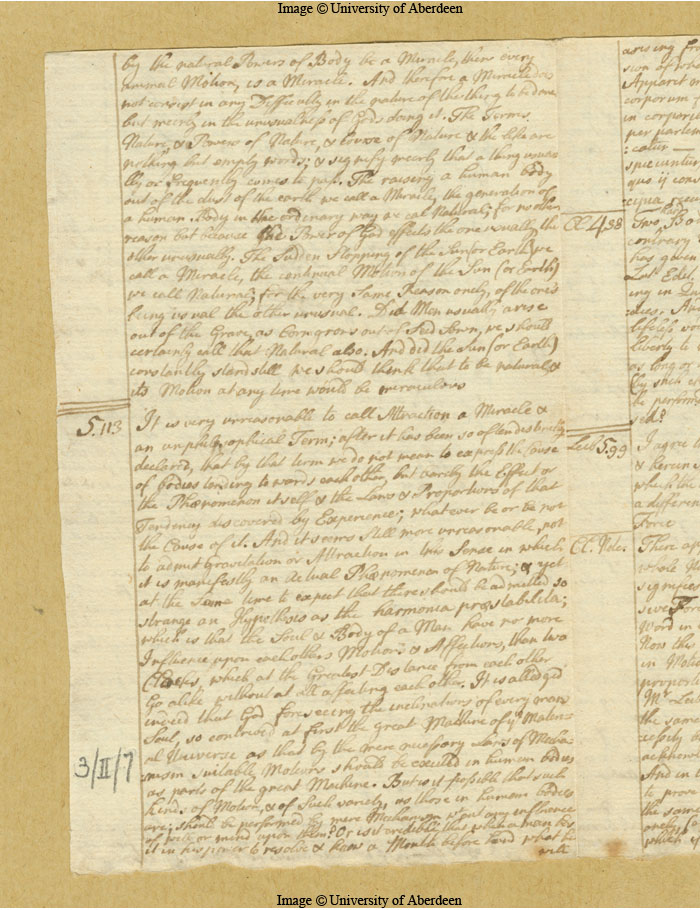 Image © University of Aberdeen
by the natural Powers of Body be a Miracle, then every
animal Motion, is a Miracle. And therefore a Miracle does
not consist in any Difficulty in the nature of the thing to be done
but meerly in the unusualness of Gods doing it. The Terms
Nature, & Powers of Nature, & Course of Nature & the like are
nothing but empty words; & signify meerly that a thing usual
ly or frequently comes to pass. The raising a human body
out of the dust of the earth we call a Miracle, the generation of
a human Body in the ordinary way we call Natural; for no other
reason but because the Power of God effects the one usually the
other unusually. The Sudden Stopping of the Sun (or Earth) we
call a Miracle, the continual Motion of the Sun (or Earth)
we call Natural; for the very Same Reason onely, of the one's
being usual the other unusual. Did Men usually arise
out of the Grave, as Corn grows out of Seed Sown, we should
certainly call that Natural also. And did the Sun (or Earth)
constantly stand still we should think that to be natural, &
its Motion at any time would be miraculous
5.113
It is very unreasonable to call Attraction a Miracle &
an unphilosophical Term; after it has been so often distinctly
declared, that by that term we do not mean to express the Cause
of bodies tending towards each other, but barely the Effect or
the Phænomenon itself & the Laws & Proportions of that
Tendency discovered by Experience; whatever be or be not
the Cause of it. And it seems still more unreasonable, not
to admit Gravitation or Attraction in this Sense in which
it is manifestly an Actual Phænomenon of Nature; & yet
at the Same time to expect that there should be admitted so
strange an Hypothesis as the harmonia præstabilita;
which is that the Soul & Body of a Man have no more
Influence upon each others Motions & Affections, than two
Clocks, which at the Greatest Distance from each other
Go alike without at all affecting each other. It is alledged
indeed that God foreseeing the inclinations of every mans
Soul, so contrived at first the great Machine of ye Materi
al Universe as that by the mere necessary Laws of Mecha
nism suitable Motions should be excited in human bodies
as parts of the great Machine. But is it possible that such
kinds of Motion, & of Such variety, as those in human bodies
are; should be performed by mere Mechanism without any influence
of will or mind upon them? Or is it credible that when a man has
it in his power to resolve & know a Month before hand what he
will
3/II/7
arising fro
Apparet
corporum
in corpori
per partem
:catur —
Cl. 438
Two
contrary
has given
Last Edit.
liberty to
as long
by such
be performed
Leib 5.99
I agree
& herein
a different
Force
Cl. Note.
There
whole
significa
sive Force
Word in
Now this
in Motion
proportio
Mr Lei
the same
cessity be
acknow
And in
to prove
the same
onely
which
Image © University of Aberdeen